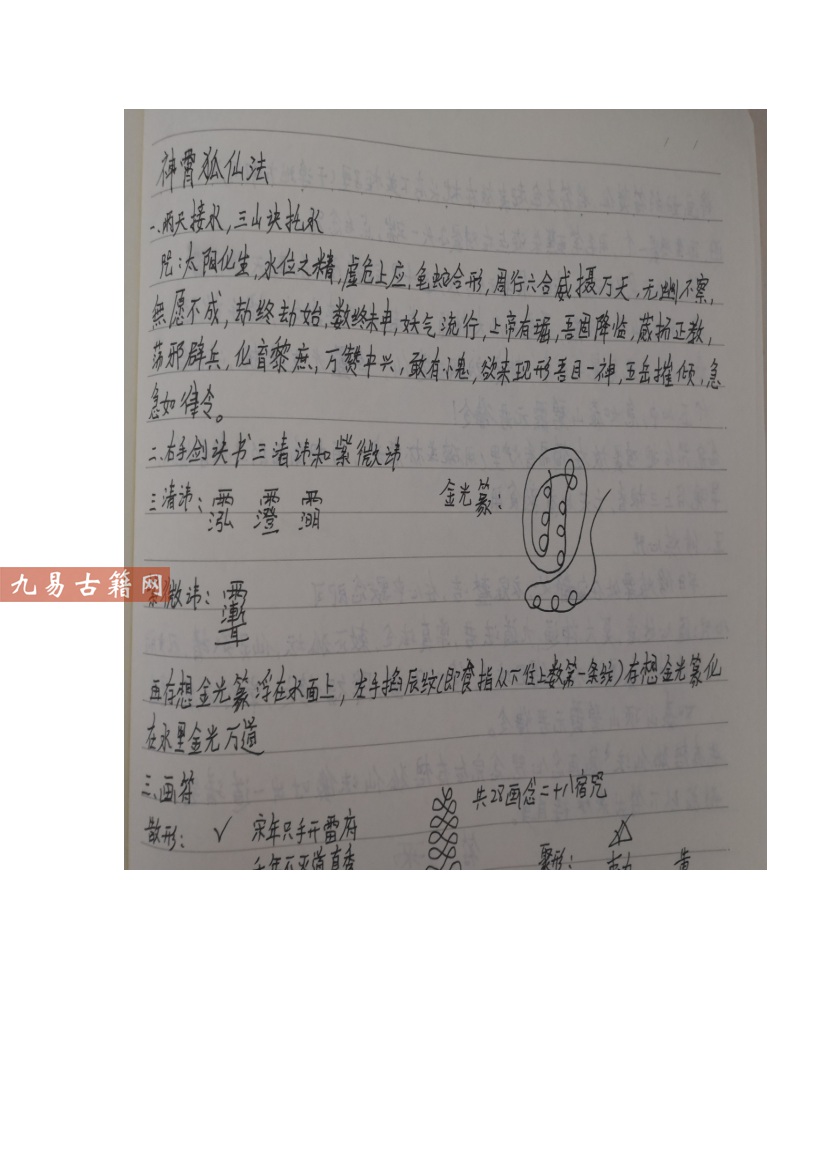 神霄狐仙法
一、雨天接水,三山诀托水
咒:太阳化生,水位之精,虚危上应,龟蛇合形,周行六合威摄万天,无幽不察,
無愿不成,劫终劫始,数终未申,妖气流行,上帝有,吾固降临,葳扬正教,
荡邪辟兵,化育黎庶,万赞中兴,敢有小鬼,欲来现形吾目一神,五岳摧倾,急
急如律令。
二、右手剑诀书三清讳和紫微讳
三清讳:
金光篆:
九易古籍网
微讳:
再存想金光篆浮在水面上,左手掐辰纹(即食指从下往上数第一条纹)存想金光篆化
在水里金光万道
三、画符
共28画念二十八宿咒
散形: ✓ 宋年只手开雷府
聚形: